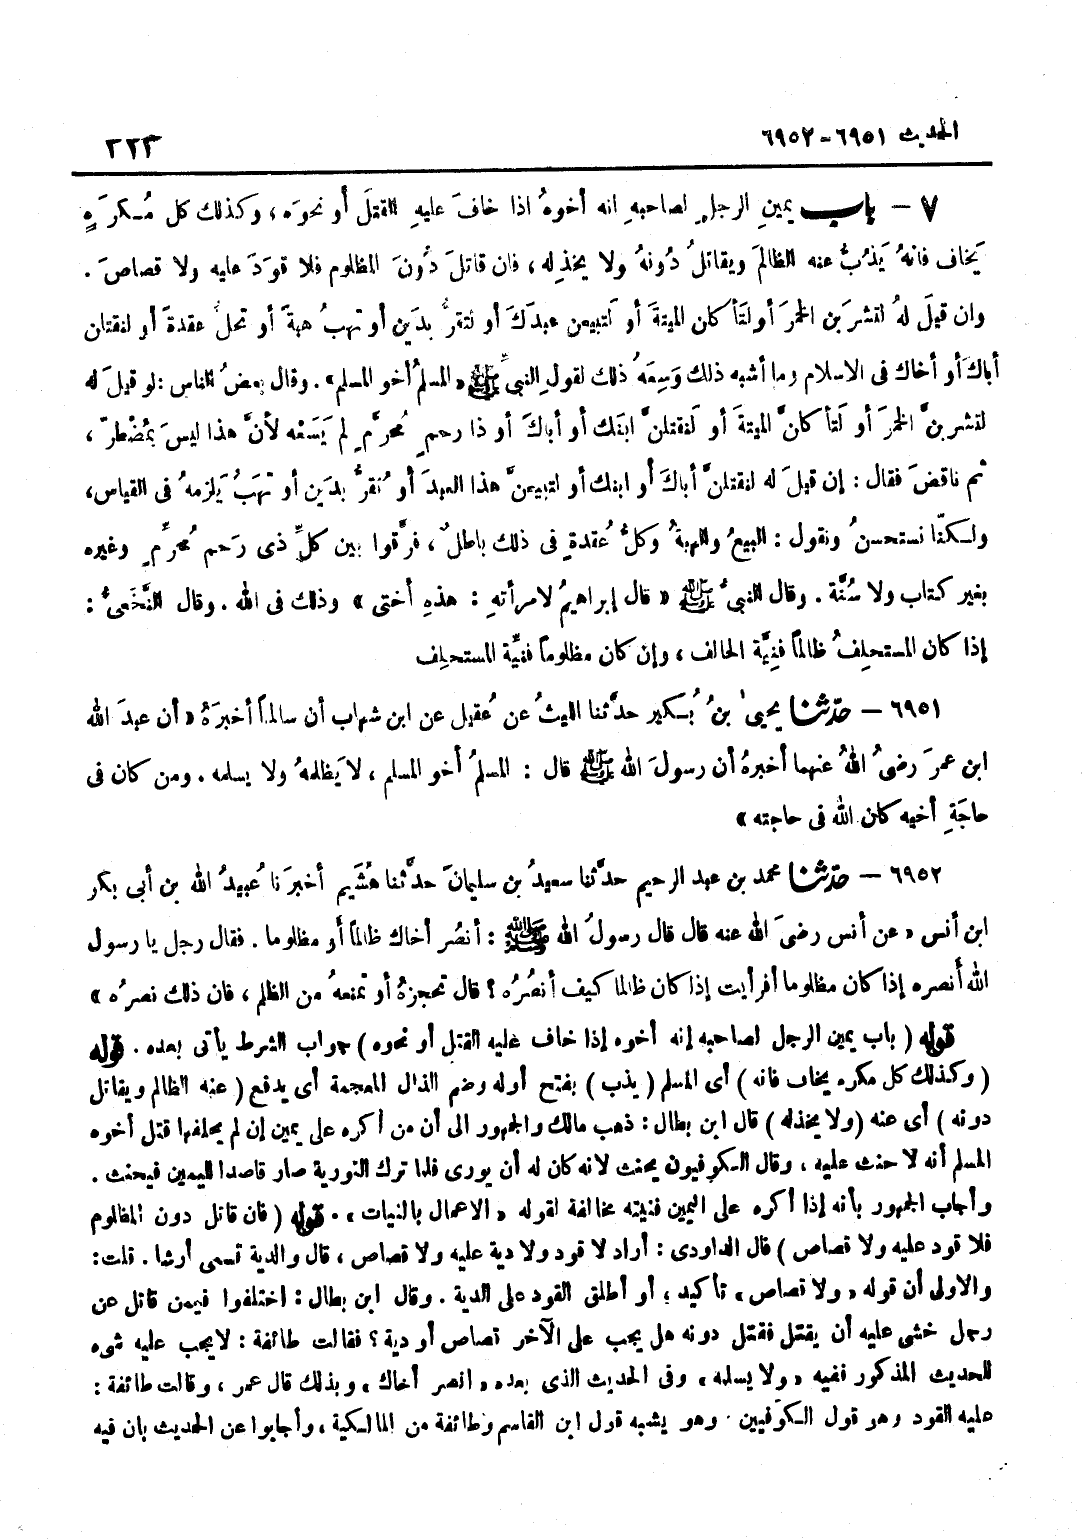 الحديث ٦٩٥١-٦٩٥٢ ٣٢٣
٧ - باب يمينِ الرجلِ لصاحبهِ انه أخوهُ اذا خافَ عليهِ القتلَ أو نحوَه ، وكذلك كل مُكرَهٍ
يَخاف فانهُ يَذُبُّ عنه الظالمَ ويقاتلُ دُونهُ ولا يخذِله ، فان قاتلَ دُونَ المظلوم فلا قوَدَ عليه ولا قصاصَ .
وان قيلَ لهُ لتشربن الخمرَ أو لتأكلن الميتةَ أو لتبيعن عبدَكَ أو لتقرُّ بدَين أو تهبُ هبةَ أو تحلُّ عقدةَ أو لنقتلن
أباكَ أو أخاك فى الاسلام وما أشبه ذلك وَسِعَهُ ذلك لقولِ النبيِّ ﷺ « المسلمُ أخو المسلم » . وقال بعضُ الناس : لو قيلَ له
لتشربنَّ الخمرَ أو لتأكلنَّ الميتةَ أو لَنقتلنَّ ابنَك أو أباكَ أو ذا رحمٍ مُحرَّمٍ لم يَسَعْه لأنَّ هذا ليسَ بمُضطرّ ،
ثم ناقضَ فقال : إن قيلَ له لنقتلنَّ أباكَ أو ابنك أو لتبيعنَّ هذا العبدَ أو تُقرُّ بدَين أو تهَبُ يَلزمهُ فى القياس ،
ولكنّا نستحسنُ ونقول : البيعُ والهبةُ وكلُّ عُقدةٍ فى ذلك باطلٌ ، فرَّقوا بين كلِّ ذى رَحم مُحرَّمٍ وغيره
بغير كتاب ولا سُنَّة . وقال النبىُّ ﷺ « قال إبراهيمُ لامرأتهِ : هذهِ أختى » وذلك فى الله . وقال النَّخَعىُّ :
إذا كان المستحلِفُ ظالماً فنِيَّة الحالف ، وإن كان مظلوماً فنيَّة المستحلِف
٦٩٥١ - حدّثنا يحيىٰ بنُ بُكير حدَّثنا الليثُ عن عُقيل عن ابن شهاب أن سالماً أخبرَهُ « أن عبدَ الله
ابن عمرَ رضىُ اللهُ عنهما أخبرهُ أن رسولَ الله ﷺ قال : المسلمُ أخو المسلم ، لا يَظلمهُ ولا يسلمه . ومن كان فى
حاجَةِ أخيه كان الله فى حاجته »
٦٩٥٢ - حدّثنا محمد بن عبد الرحيم حدَّثنا سعيدُ بن سليمانَ حدَّثنا هُشَيم أخبرَنا عُبيدُ الله بن أبى بكر
ابن أنس « عن أنس رضىَ الله عنه قال قال رسولُ الله ﷺ : أنصُر أخاك ظالماً أو مظلوما . فقال رجل يا رسول
الله أنصره إذا كان مظلوما أفرأيت إذا كان ظالما كيف أنصُرُه ؟ قال تحجزهُ أو تمنعهُ من الظلم ، فان ذلك نصرُه »
قوله ( باب يمين الرجل لصاحبه إنه أخوه إذا خاف عليه القتل أو نحوه ) جواب الشرط يأتى بعده . قوله
( وكذلك كل مكره يخاف فانه ) أى المسلم ( يذب ) بفتح أوله وضم الذال المعجمة أى يدفع ( عنه الظالم ويقاتل
دونه ) أى عنه ( ولا يخذله ) قال ابن بطال : ذهب مالك والجمهور الى أن من أكره على يمين إن لم يحلفها قتل أخوه
المسلم أنه لا حنث عليه ، وقال الكوفيون يحنث لانه كان له أن يورى فلما ترك التورية صار قاصدا لليمين فيحنث .
وأجاب الجمهور بأنه إذا أكره على اليمين فنيته مخالفة لقوله « الاعمال بالنيات » . قوله ( فان قاتل دون المظلوم
فلا قود عليه ولا قصاص ) قال الداودى : أراد لا قود ولا دية عليه ولا قصاص ، قال والدية تسمى أرشا . قلت :
والاولى أن قوله « ولا قصاص » تأكيد ، أو أطلق القود على الدية . وقال ابن بطال : اختلفوا فيمن قاتل عن
رجل خشى عليه أن يقتل فقتل دونه هل يجب على الآخر قصاص أو دية ؟ فقالت طائفة : لا يجب عليه شىء
للحديث المذكور ففيه « ولا يسلمه » وفى الحديث الذى بعده « انصر أخاك » وبذلك قال عمر ، وقالت طائفة :
عليه القود وهو قول الكوفيين . وهو يشبه قول ابن القاسم وطائفة من المالكية ، وأجابوا عن الحديث بان فيه